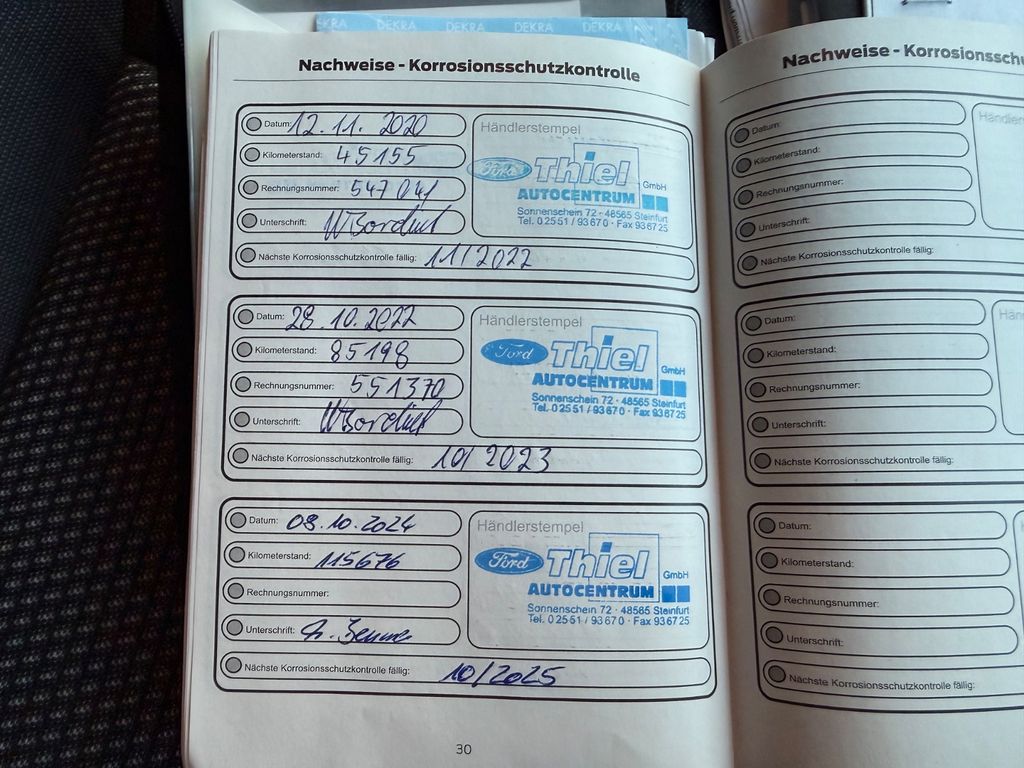 DEKRA DEKRA DEKRA DEKRA
Nachweise - Korrosionsschutzkontrolle
Datum: 12.11.2020
Kilometerstand: 45155
Rechnungsnummer: 547041
Unterschrift:
Nächste Korrosionsschutzkontrolle fällig: 11/2022
Händlerstempel
Ford Thiel GmbH
AUTOCENTRUM
Sonnenschein 72 · 48565 Steinfurt
Tel. 0 25 51 / 9 36 70 · Fax 93 67 25
Datum: 28.10.2022
Kilometerstand: 85198
Rechnungsnummer: 551370
Unterschrift:
Nächste Korrosionsschutzkontrolle fällig: 10/2023
Händlerstempel
Ford Thiel GmbH
AUTOCENTRUM
Sonnenschein 72 · 48565 Steinfurt
Tel. 0 25 51 / 9 36 70 · Fax 93 67 25
Datum: 08.10.2024
Kilometerstand: 115676
Rechnungsnummer:
Unterschrift:
Nächste Korrosionsschutzkontrolle fällig: 10/2025
Händlerstempel
Ford Thiel GmbH
AUTOCENTRUM
Sonnenschein 72 · 48565 Steinfurt
Tel. 0 25 51 / 9 36 70 · Fax 93 67 25
30
Nachweise - Korrosionsschu
Datum:
Kilometerstand:
Rechnungsnummer:
Unterschrift:
Nächste Korrosionsschutzkontrolle fällig:
Händler
Datum:
Kilometerstand:
Rechnungsnummer:
Unterschrift:
Nächste Korrosionsschutzkontrolle fällig:
Hän
Datum:
Kilometerstand:
Rechnungsnummer:
Unterschrift:
Nächste Korrosionsschutzkontrolle fällig: